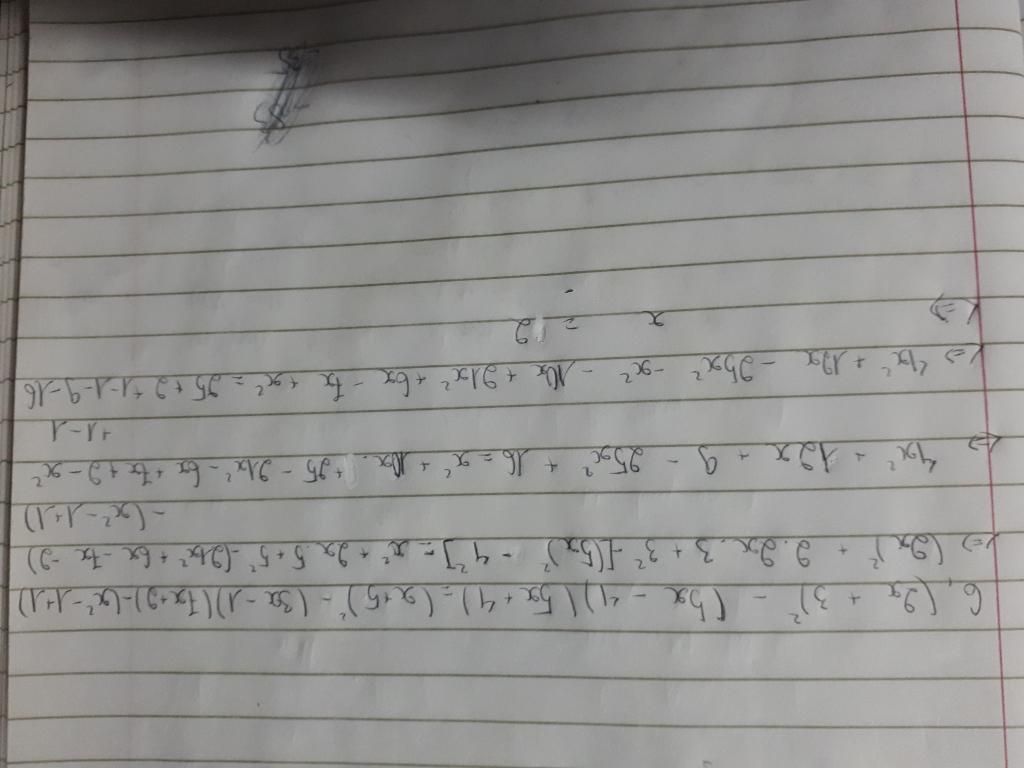 6, (2x + 3)² - (5x - 4)(5x + 4) = (x+5)² - (3x - 1)(7x+2)-(x² - 1+1)
=> (2x)² + 2. 2x. 3 + 3² -[(5x)² - 4²] = x² + 2x. 5 + 5² -(21x² + 6x - 7x -2)
- (x² - 1+1)
=> 4x² + 12x + 9 - 25x² + 16 = x² + 10x + 25 - 21x² - 6x + 7x + 2 - x²
+1 - 1
=> 4x² + 12x - 25x² - x² - 10x + 21x² + 6x - 7x + x² = 25 + 2 + 1 - 1 - 9 - 16
=> x = 2